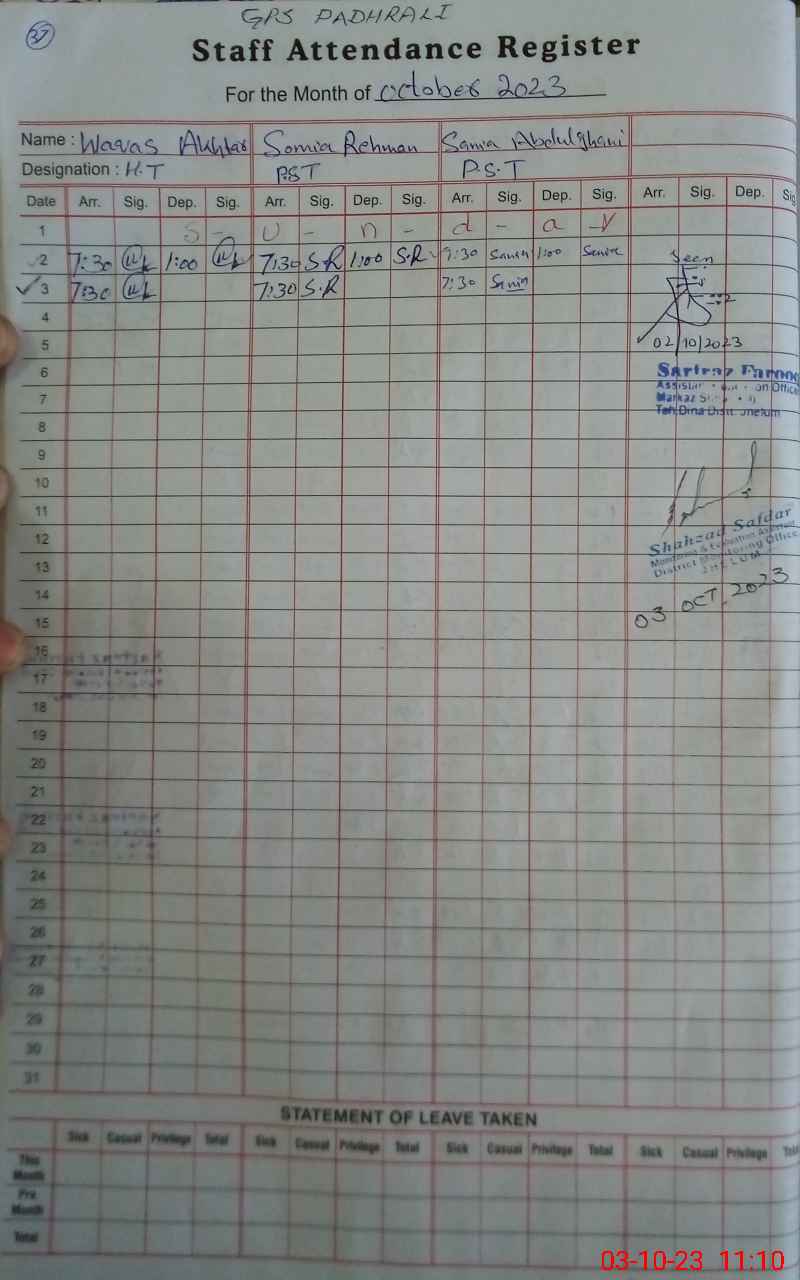 37
GPS PADHRALI
Staff Attendance Register
For the Month of October 2023
Name : Waqas Akhtar Somia Rehman Samia Abdulghani
Designation : H.T P.S.T P.S.T
Date Arr. Sig. Dep. Sig. Arr. Sig. Dep. Sig. Arr. Sig. Dep. Sig. Arr. Sig. Dep. Sig
1 S - U - n - d - a - y
2 7:30 1:00 7:30 S.R 1:00 S.R 7:30 Samia 1:00 Samia Seen
3 7:30 7:30 S.R 7:30 Samia
4
5 02/10/2023
6 Sarfraz Farooq
7 Assistant Education Office
Markaz
Teh Dina Distt. Jhelum
8
9
10
11
12 Shahzad Safdar
Monitoring & Evaluation Assistant
13 District Monitoring Office
JHELUM
14 03 OCT 2023
15
16
17
18
19
20
21
22
23
24
25
26
27
28
29
30
31
STATEMENT OF LEAVE TAKEN
Sick Casual Privilege Total Sick Casual Privilege Total Sick Casual Privilege Total Sick Casual Privilege Tot
This Month
Pre Month
Total
03-10-23 11:10